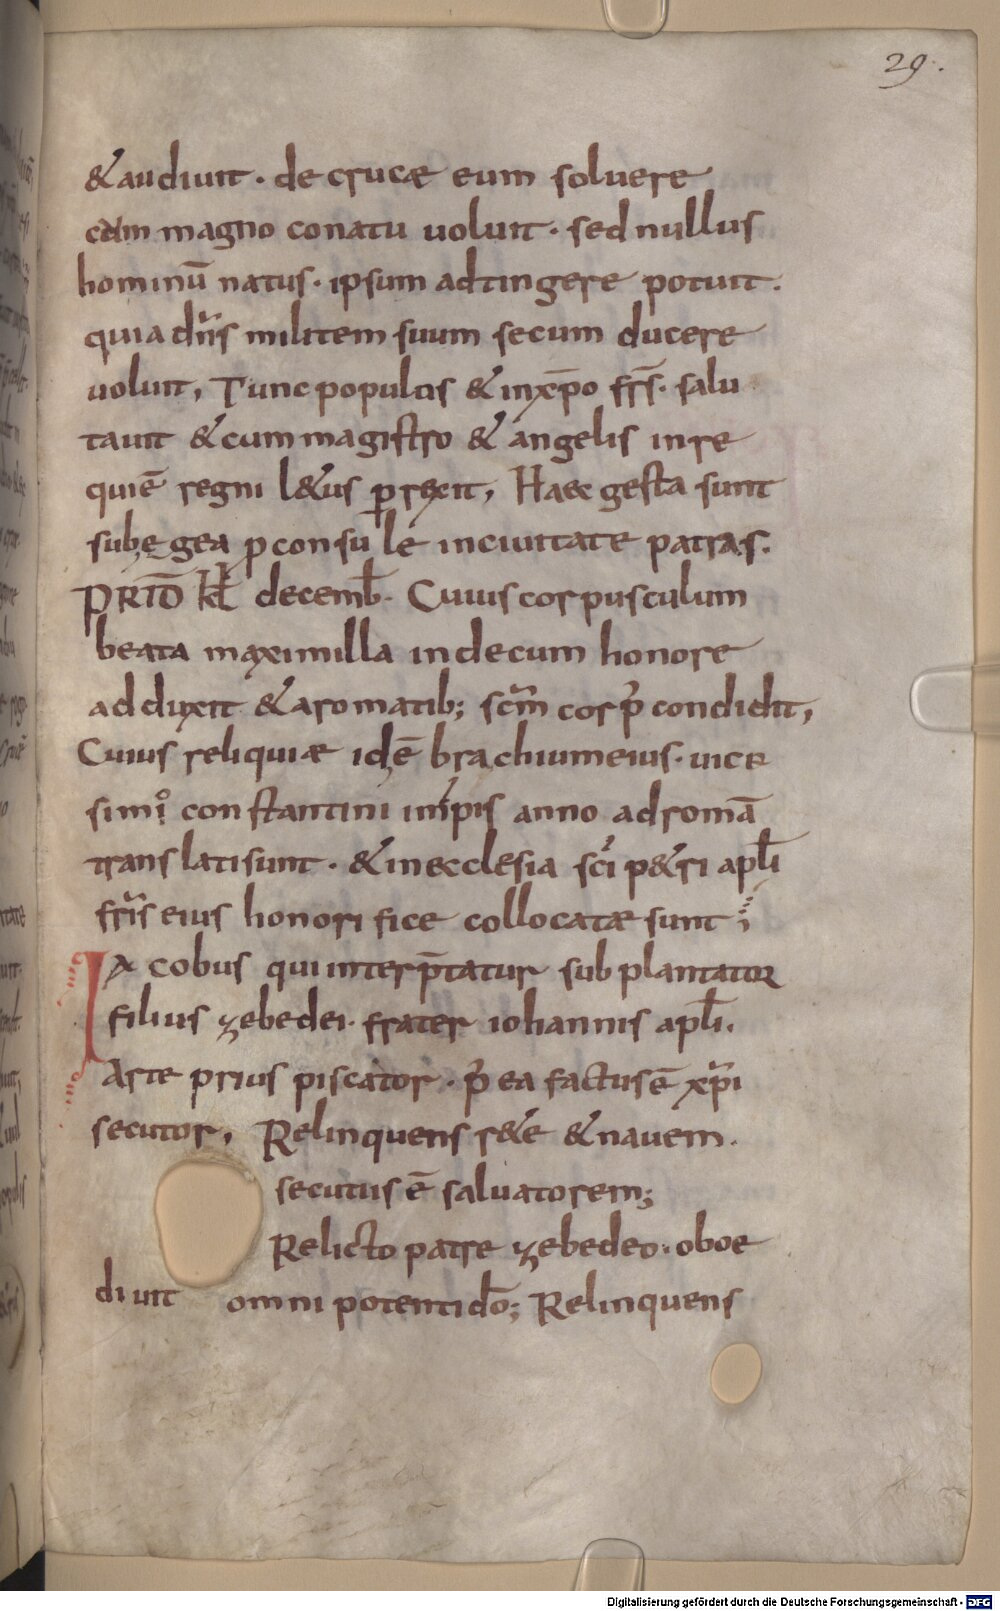 29.
&audiuit · de crucæ eum soluere
cum magno conatu uoluit · sed nullus
hominū natus · ipsum adtingere potuit .
quia dn̄s militem suum secum ducere
uoluit, Tunc populus & inxp̄o fr̄s · salu
tauit & cum magistro & angelis inre
quiē regni l&us ꝑrexit, Haec gesta sunt
sub ęgea ꝓconsule inciuitate patras.
PRID̄ kl̄ decemb̄ · Cuius corpusculum
beata maximilla indecum honore
adduxit & aromatib; sc̄m corp̄ condidit,
Cuius reliquiæ idē brachium eius · uice
simo constantini imp̄is anno adromā
translati sunt · & in ecclesia sc̄i p&ri apl̄i
fr̄is eius honorifice collocatæ sunt ;
IAcobus qui interp̄tatur subplantator
filius zebedei · frater iohannis apl̄i.
Arte prius piscator · p̄ ea factus ē xp̄i
secutor, Relinquens r&e & nauem .
secutus ē saluatorem;
Relicto patre zebedeo · oboe
diuit omnipotenti do̅; Relinquens
Digitalisierung gefördert durch die Deutsche Forschungsgemeinschaft - DFG